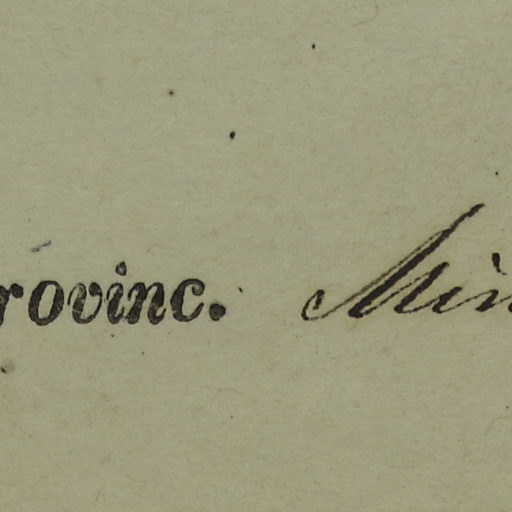 rovinc. Min